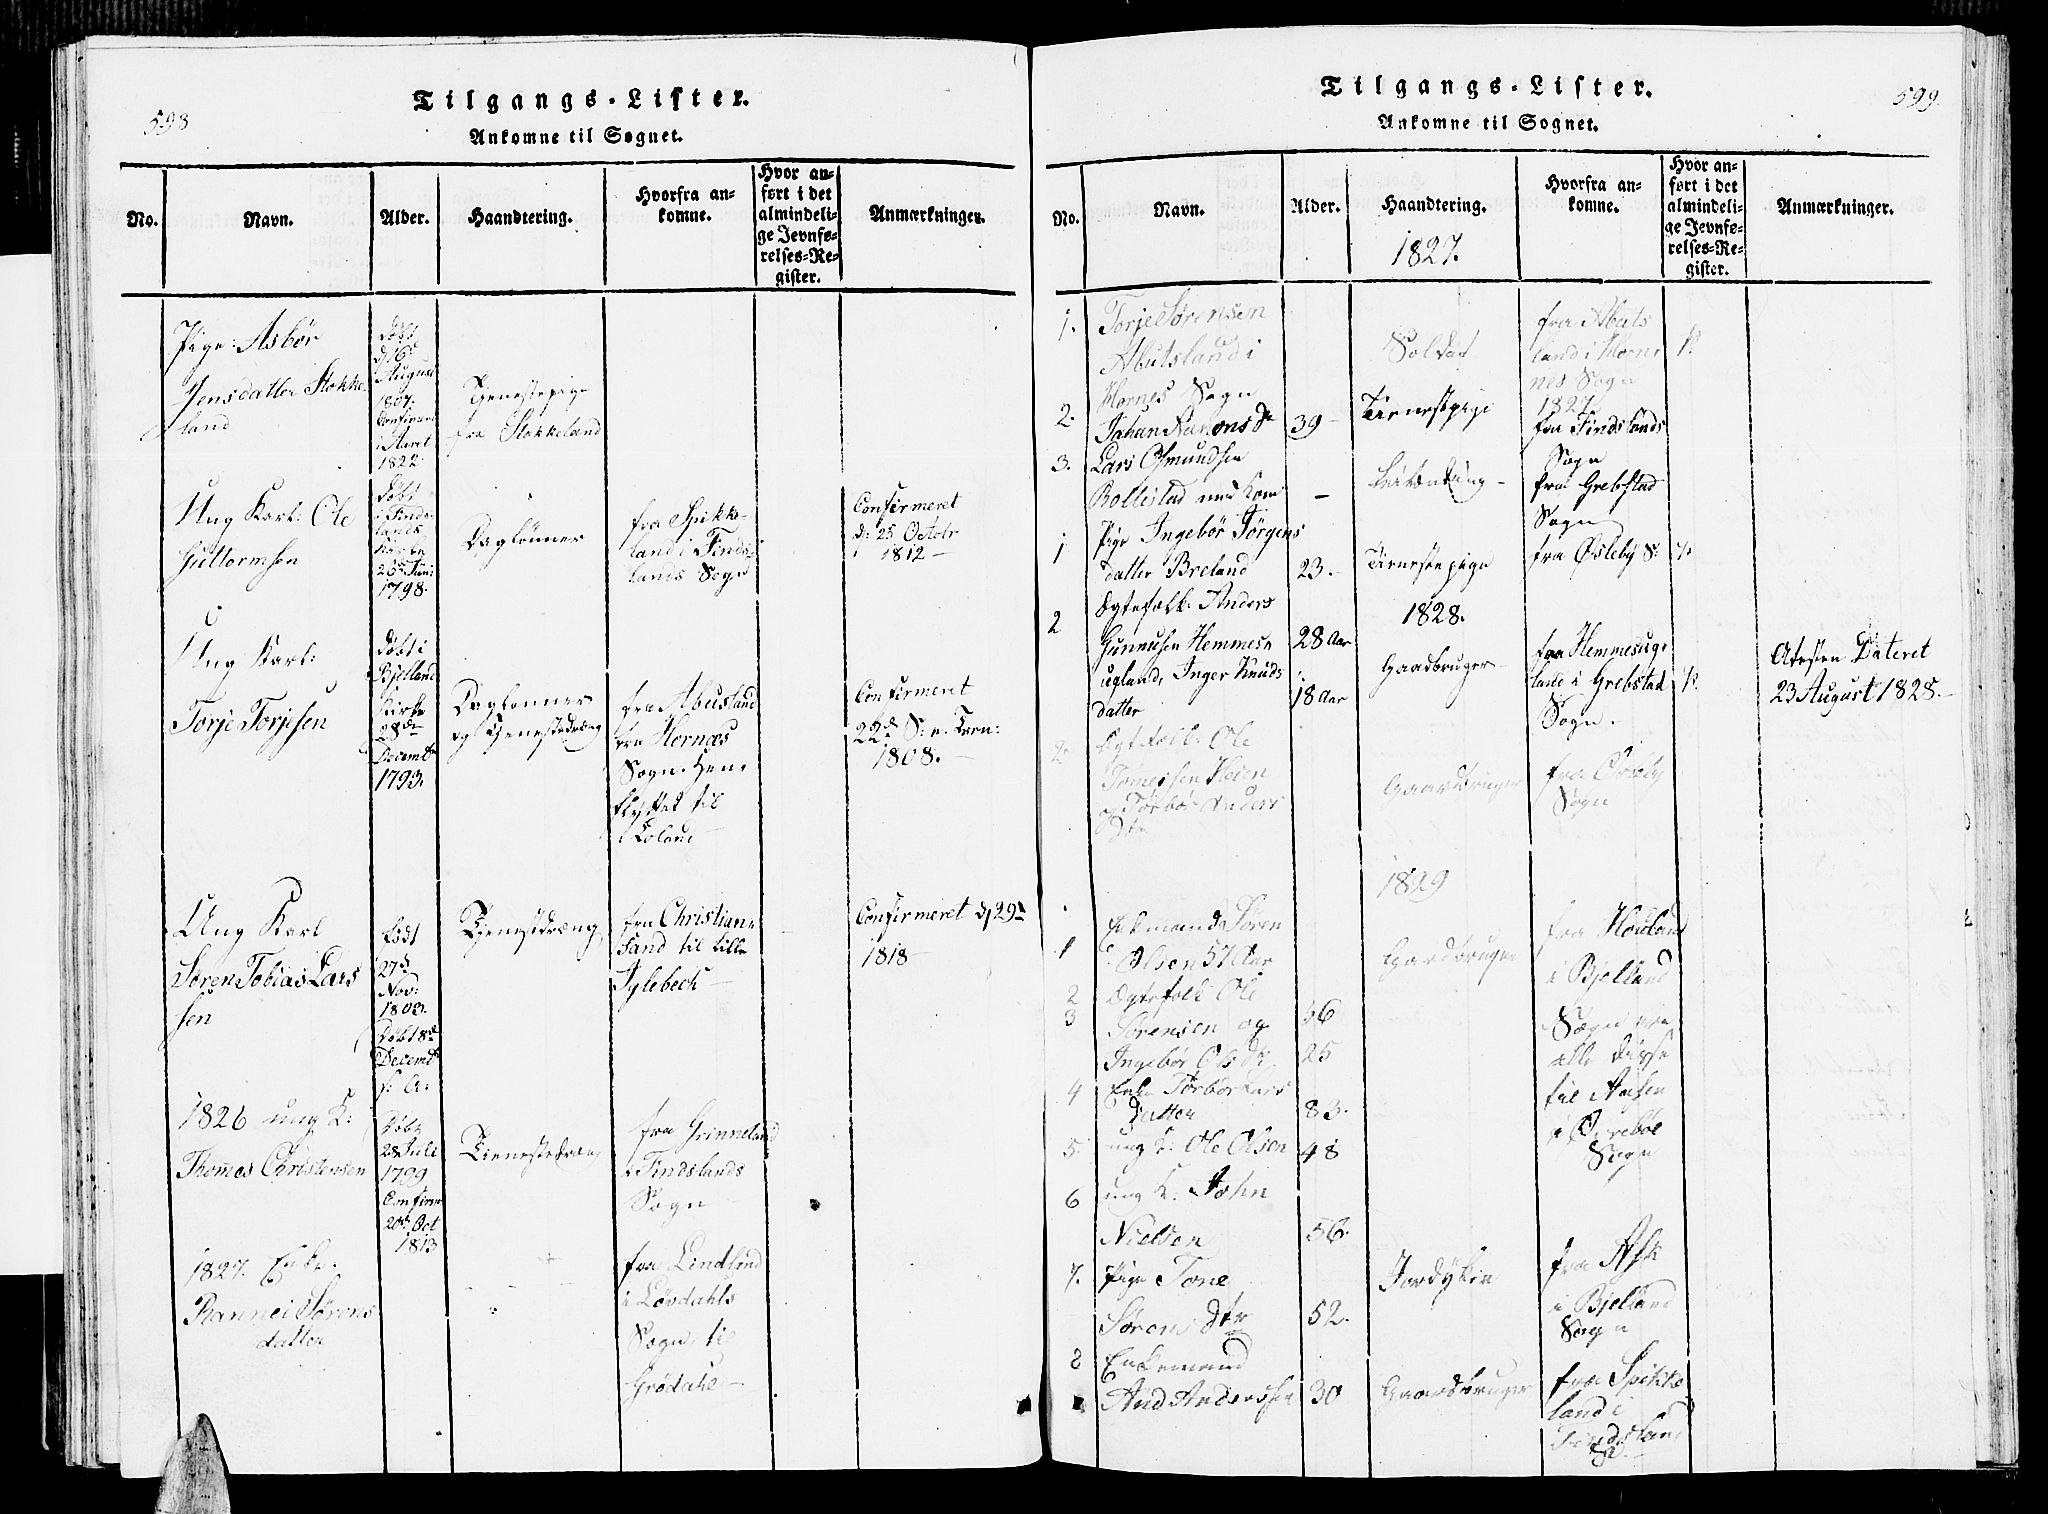 598
Tilgangs-Lister.
Ankomne til Sognet.
No.
Navn.
Alder.
Haandtering.
Hvorfra an-
komne.
Hvor an-
ført i det
almindeli-
ge Jevnfø-
relses-Re-
gister.
Anmærkninger.
Pige: Asbør
Jensdatter Stokke
land
Døbt
d/16d
August
1807.
Confirmert
i Aaret
1822.
Tjenestepige
fra Stokkeland
Ung Karl: Ole
Guttormsen
Døbt
i Finds
lands
Kirke
25de Juni
1798.
Daglønner
fra Spikke-
land i Finds
lands Sogn
Confirmeret
d: 25 Octobr
1812 –
Ung Karl:
Torje Torjesen
Døbt i
Bjelland
Kirke
28de
Decembr
1793.
Daglønner
og Tjenestedræng
fra Abusland
fra Hornæs
Sogn. Hen-
flyttet til
Loland
Confirmeret
22de S: e. Tren:
1808. –
Ung Karl
Søren Tobias Lars
sen
født
27d
Nov:
1803.
Døbt 8d
Decemb
s: A:
Tjenestdræng
fra Christian
sand til lille
Iglebech –
Confirmeret d/29d
1818 –
1826 ung K:
Thomes Christensen
Døbt
28 Juli
1799
Confirm
20de Oct
1813
Tienestedræng
fra Grinneland
i Findslands
Sogn
1827. Enke.
Rannei Sørens
datter
fra Lindland
i Løvdahls
Sogn, til
Grødahl –
599.
Tilgangs-Lister.
Ankomne til Sognet.
No.
Navn.
Alder.
Haandtering.
1827.
Hvorfra an-
komne.
Hvor an-
ført i det
almindeli-
ge Jevnfø-
relses-Re-
gister.
Anmærkninger.
1.
Torje Sørensen
Abutsland i
Hornes Sogn
Soldat
fra Abuts
land i Horne
nes Sogn
1827
2.
Johan Aanons Dr
39 –
Tienestpige
fra Findslands
Sogn
3.
Lars Osmundsen
Rollestad med Kone
–
fra Grebstad
Sogn
1
Pige Ingebør Jørgens
datter Breland
23.
Tienestepige
fra Øslebÿ S:
1828.
2
Ægtefolk. Anders
Gunnusen Hemmesn
ugland, Inger Knuds
datter
28 Aar
18 Aar
Gaardbruger
fra Hemmesug
land i Grebstad
Sogn.
Atesten Dateret
23 August 1828. –
2.
Egtefolk: Ole
Tomessen Heien
og Tørbør Anders
Dtr
Gaardbruger
fra Øslebÿ
Sogn
1829
1
Enkemand Søren
Olsen 57 Aar
Gardbruger
fra Houland
i Bjelland
Sogn ere
alle disse
til Aasen
i Øvrebøe
Sogn
2
3
Ægtefolk Ole
Sørensen og
Ingebør Ols Dr
36
25
4
Enke Tørbør Lars
datter
83.
5.
ung K: Ole Olsen
48
6
ung K. John
Nielsen
56.
7.
Pige Tone
Sørens Dtr
52.
fra Ask
i Bjelland
Sogn
8
Enkemand
And Anderssen
30
Gaardbruger
fra Spikke
land i
Findsland
S. –